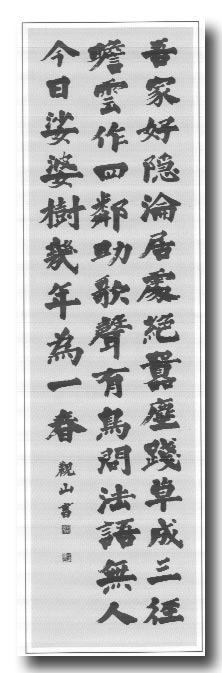 吾家好隐淪居處絕囂塵踐草成三徑
瞻雲作四鄰助歌聲有鳥問法語無人
今日娑婆樹幾年為一春
觀山書